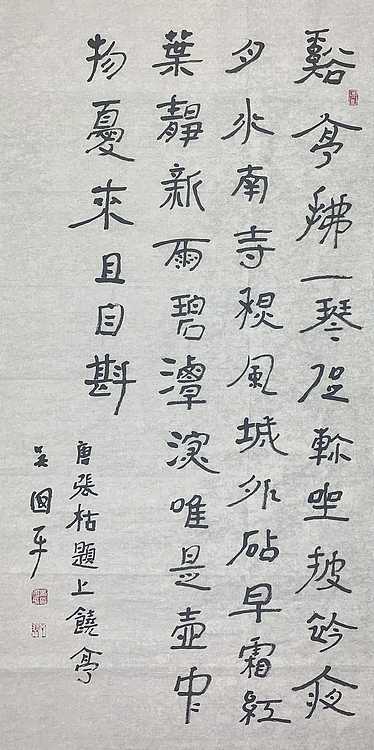 谿亭拂一琴促軫坐披衿夜
月水南寺秋風城外砧早霜紅
葉靜新雨碧潭深唯是壺中
物憂來且自斟
唐張祜題上饒亭
吴國平